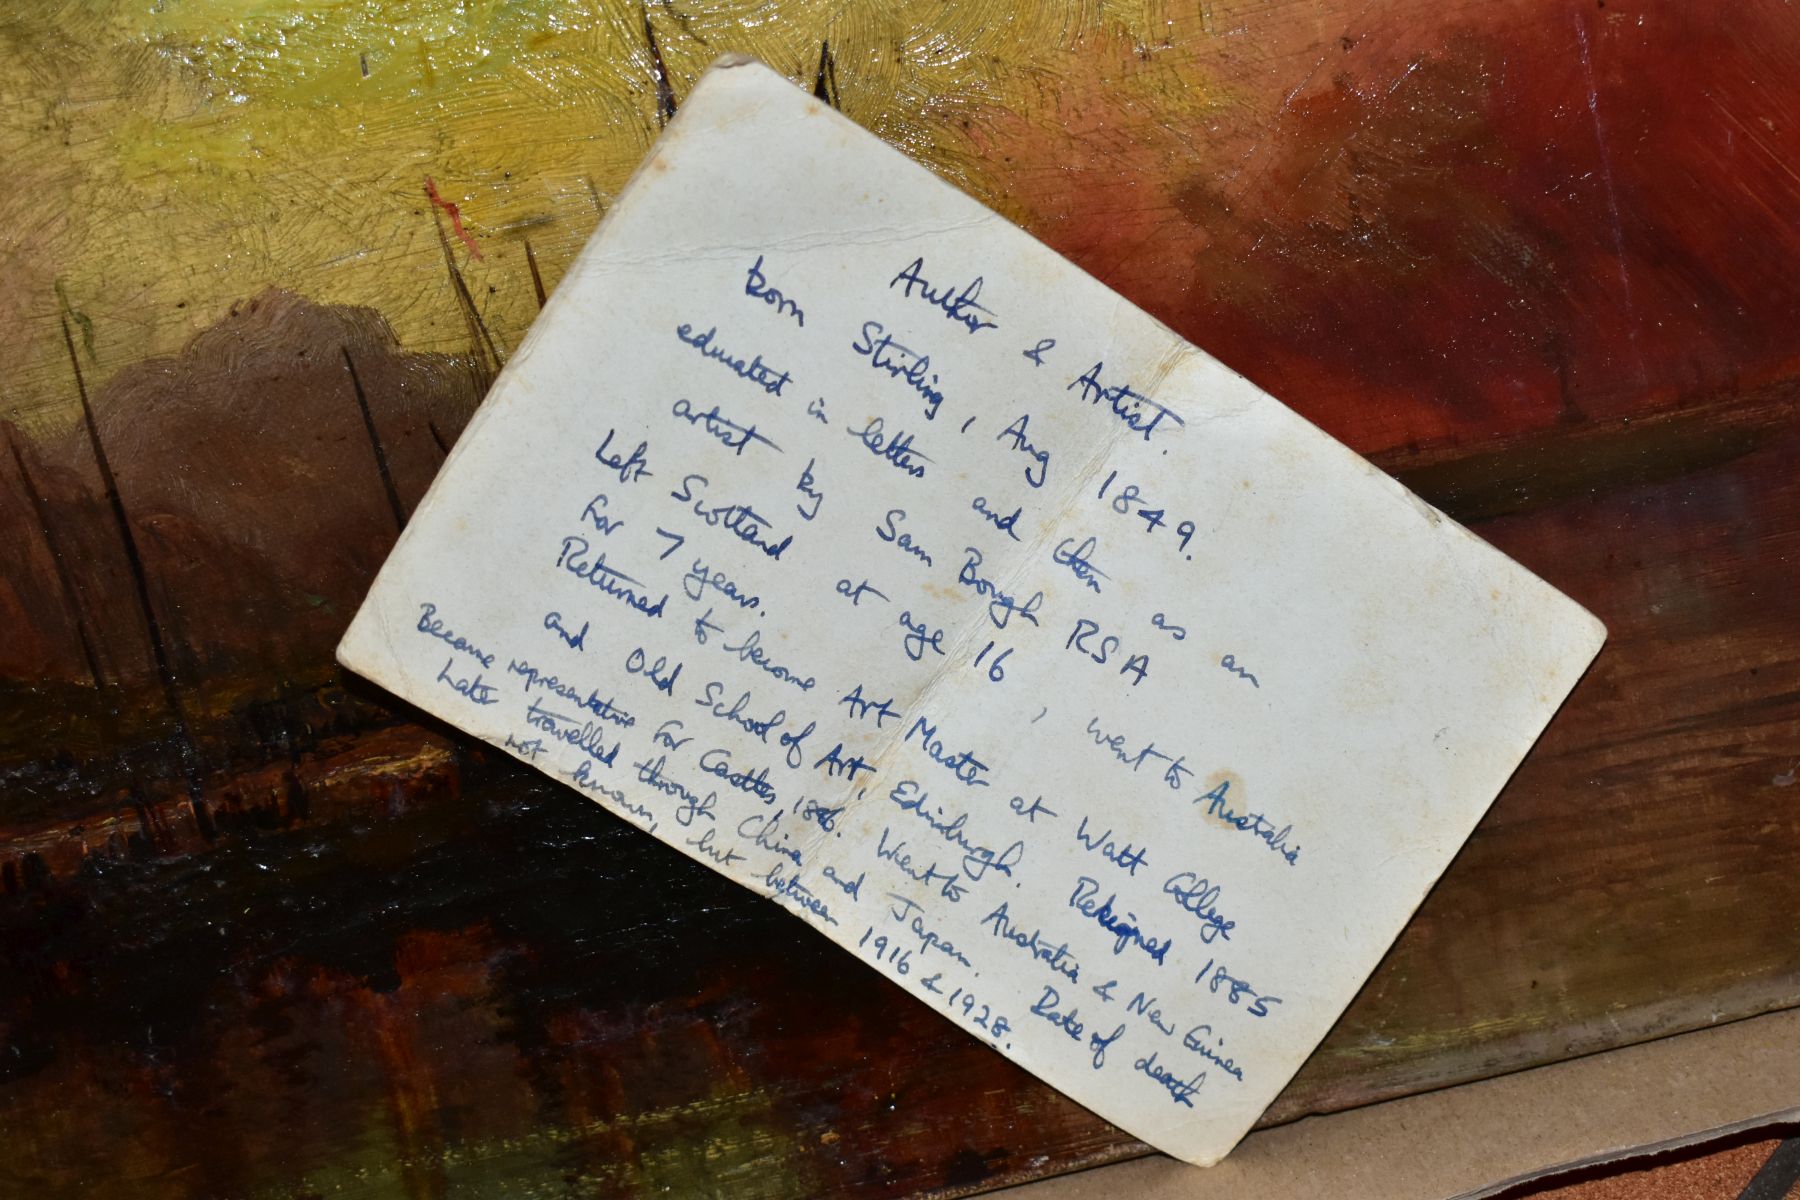 Author & Artist.
born Stirling, Aug 1849.
educated in letters and then as an
artist by Sam Bough RSA
Left Scotland at age 16, went to Australia
for 7 years.
Returned to become Art Master at Watt College
and Old School of Art, Edinburgh. Resigned 1885
Became representative for Castles, 1886. Went to Australia & New Guinea
Later travelled through China and Japan. Date of death
not known, but between 1916 & 1928.